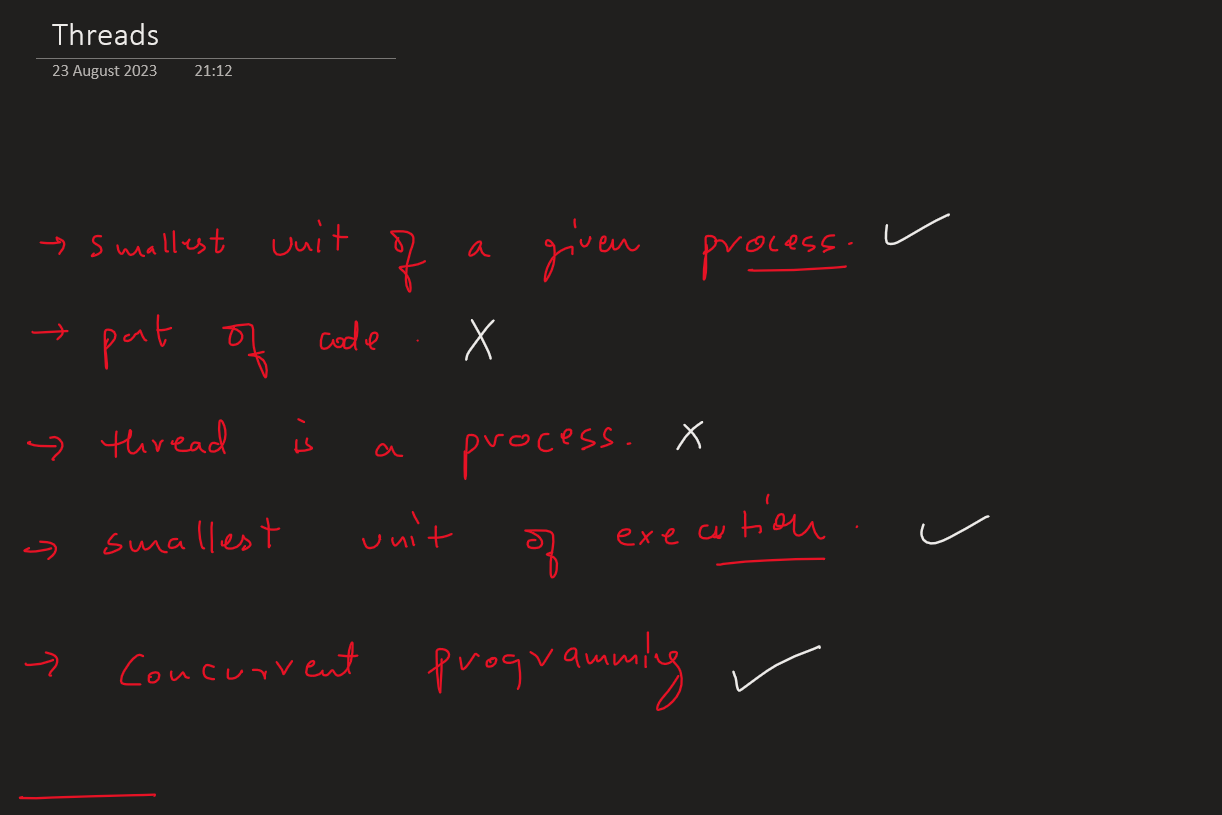 Threads
23 August 2023 21:12
→ smallest unit of a given process. ✓
→ part of code. X
→ thread is a process. X
→ smallest unit of execution. ✓
→ Concurrent programming ✓